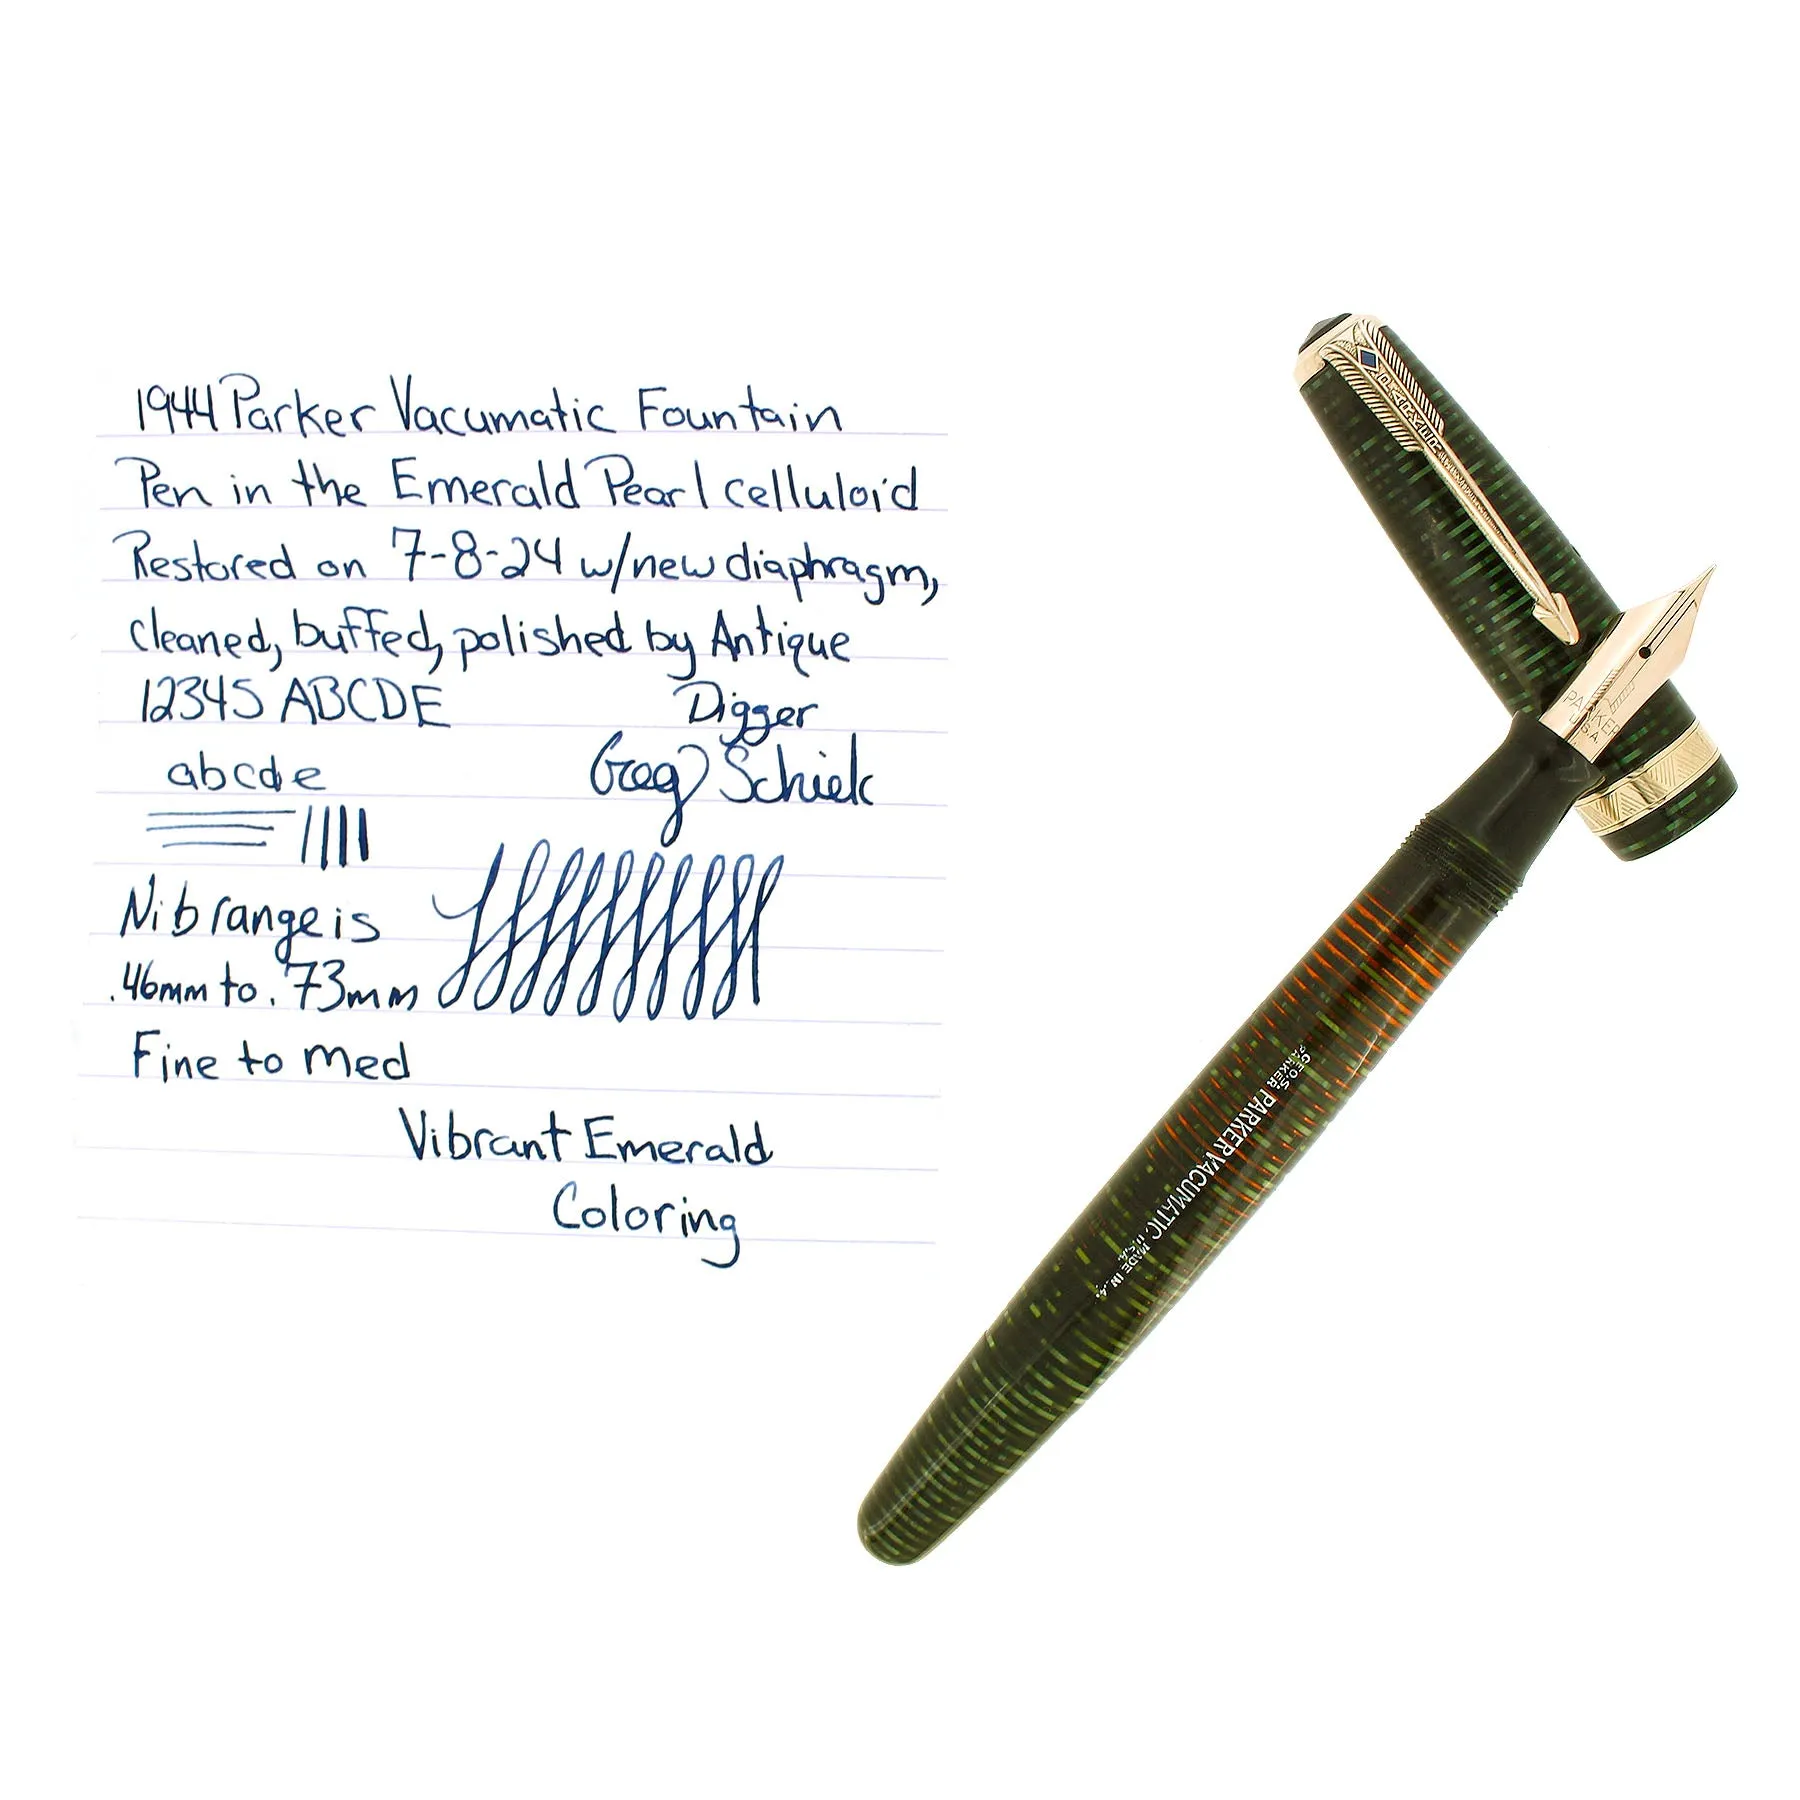 1944 Parker Vacumatic Fountain
Pen in the Emerald Pearl celluloid
Restored on 7-8-24 w/new diaphragm,
cleaned, buffed, polished by Antique
12345 ABCDE Digger
abcde Greg Schiek
Nib range is
.46mm to .73mm
Fine to med
Vibrant Emerald
Coloring
PARKER
PARKER
U.S.A
GEO.S. PARKER
PARKER VACUMATIC
MADE IN U.S.A. 4.